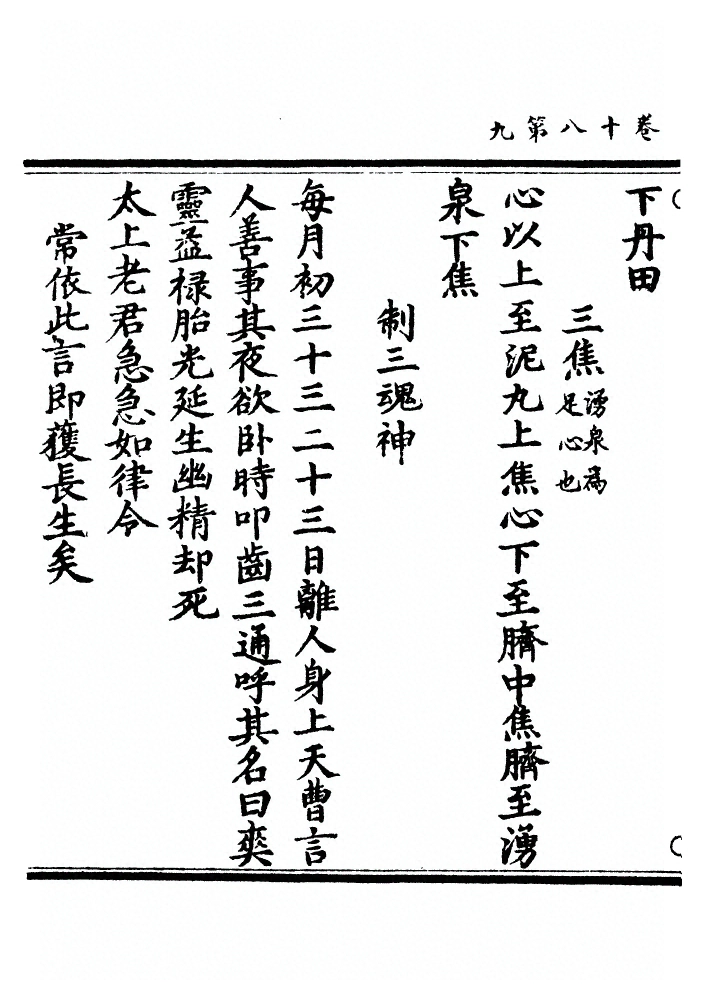 卷十八第九
下丹田
三焦湧泉為足心也
心以上至泥丸上焦心下至臍中焦臍至湧
泉下焦
制三魂神
每月初三十三二十三日離人身上天曹言
人善事其夜欲卧時叩齒三通呼其名曰爽
靈益禄胎光延生幽精却死
太上老君急急如律令
常依此言即獲長生矣